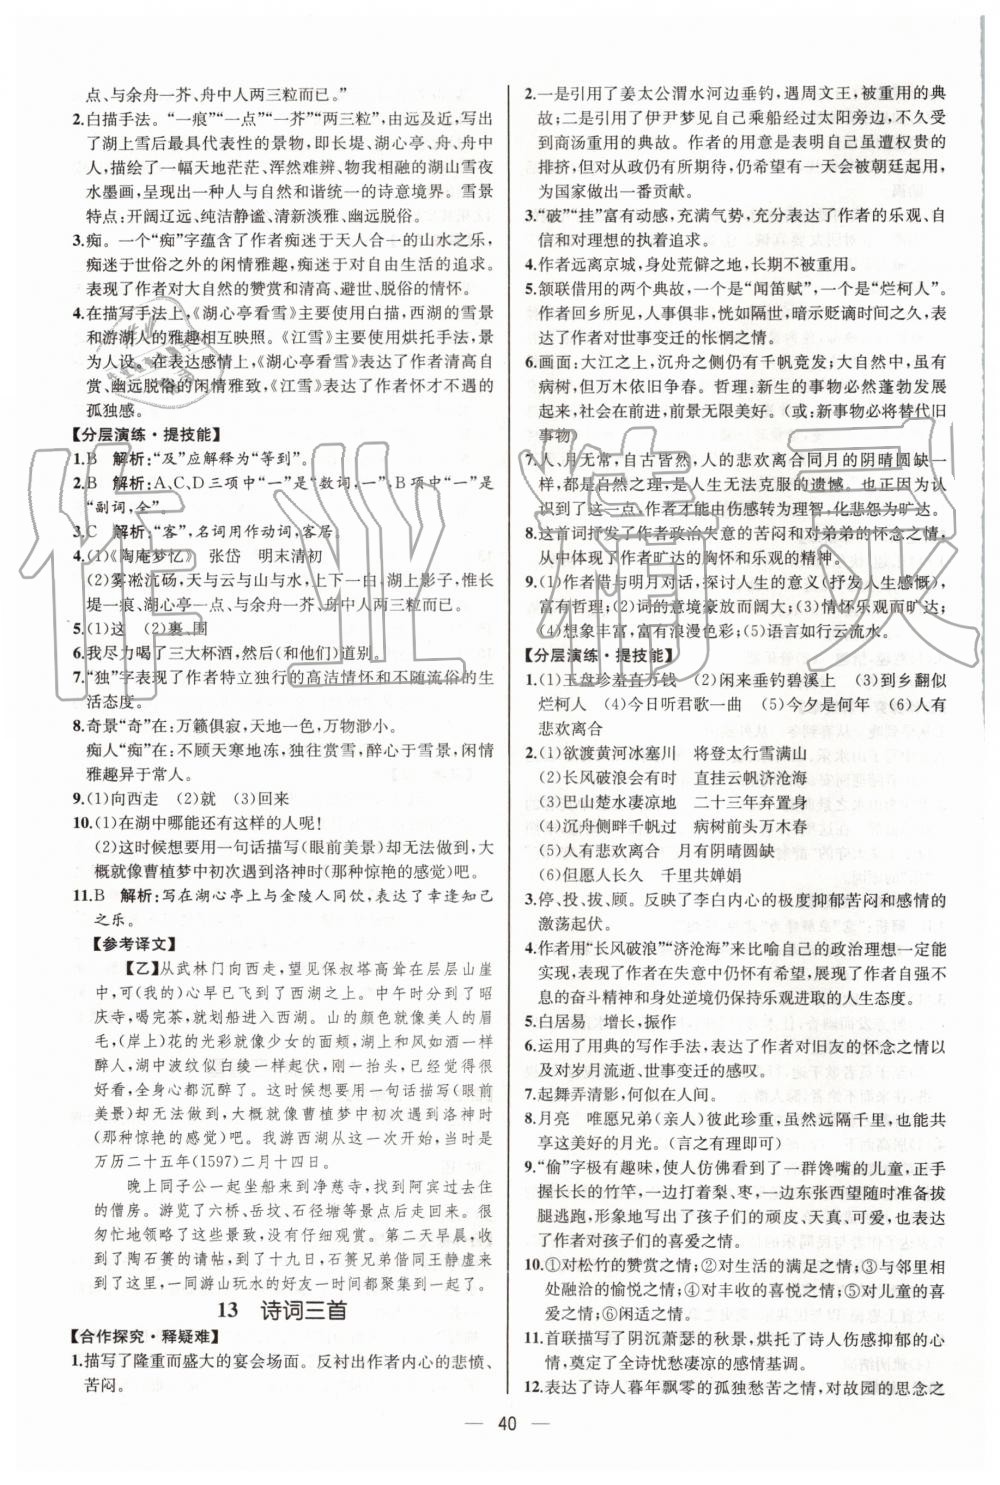 点、与余舟一芥、舟中人两三粒而已。”
2.白描手法。“一痕”“一点”“一芥”“两三粒”,由远及近,写出
了湖上雪后最具代表性的景物,即长堤、湖心亭、舟、舟中
人,描绘了一幅天地茫茫、浑然难辨、物我相融的湖山雪夜
水墨画,呈现出一种人与自然和谐统一的诗意境界。雪景
特点:开阔辽远、纯洁静谧、清新淡雅、幽远脱俗。
3.痴。一个“痴”字蕴含了作者痴迷于天人合一的山水之乐,
痴迷于世俗之外的闲情雅趣,痴迷于自由生活的追求。
表现了作者对大自然的赞赏和清高、避世、脱俗的情怀。
4.在描写手法上,《湖心亭看雪》主要使用白描,西湖的雪景
和游湖人的雅趣相互映照。《江雪》使用烘托手法,借
景为人设。在表达感情上,《湖心亭看雪》表达了作者清高自
赏、幽远脱俗的闲情雅致,《江雪》表达了作者怀才不遇的
孤独感。
【分层演练·提技能】
1.B 解析:“及”应解释为“等到”。
2.B 解析:A、C、D三项中“一”是“数词,一”,B项中“一”是
“副词,全”。
3.C 解析:“客”,名词用作动词,客居。
4.(1)《陶庵梦忆》 张岱 明末清初
(2)雾凇沆砀,天与云与山与水,上下一白,湖上影子,惟长
堤一痕、湖心亭一点、与余舟一芥、舟中人两三粒而已。
5.(1)这 (2)裹、围
6.我尽力喝了三大杯酒,然后(和他们)道别。
7.“独”字表现了作者特立独行的高洁情怀和不随流俗的生
活态度。
8.奇景“奇”在:万籁俱寂,天地一色,万物渺小。
痴人“痴”在:不顾天寒地冻,独往赏雪,醉心于雪景,闲情
雅趣异于常人。
9.(1)向西走 (2)就 (3)回来
10.(1)在湖中哪能还有这样的人呢!
(2)这时候想要用一句话描写(眼前美景)却无法做到,大
概就像曹植梦中初次遇到洛神时(那种惊艳的感觉)吧。
11.B 解析:写在湖心亭上与金陵人同饮,表达了幸逢知己
之乐。
【参考译文】
【乙】从武林门向西走,望见保叔塔高耸在层层山崖
中,可(我的)心早已飞到了西湖之上。中午时分到了昭
庆寺,喝完茶,就划船进入西湖。山的颜色就像美人的眉
毛,(岸上)花的光彩就像少女的面颊,湖上和风如酒一样
醉人,湖中波纹似白绫一样起伏,刚一抬头,已觉景色很
好看,全身心都沉醉了。这时候想要用一句话描写(眼前
美景)却无法做到,大概就像曹植梦中初次遇到洛神时
(那种惊艳的感觉)吧。我游西湖从此次开始,当时是
万历二十五年(1597)二月十四日。
晚上同子公一起坐船来到净慈寺,找到阿宾过去住
的僧房。游览了六桥、岳坟、石径塘等景点后走回来。很
匆忙地领略了这些景观,没有仔细观赏。第二天早晨,收
到了陶石篑的请帖,到了十九日,石篑兄弟偕同王静虚来
到了这里,一同游山玩水的好友一时间都聚集到一起了。
13 诗词三首
【合作探究·释疑难】
1.描写了隆重而盛大的宴会场面。反衬出作者内心的悲愤、
苦闷。
2.一是引用了姜太公渭水河边垂钓,遇周文王,被重用的典
故;二是引用了伊尹梦见自己乘船经过太阳旁边,不久受
到商汤重用的典故。作者的用意是表明自己虽遭权贵的
排挤,但对从政仍有所期待,仍希望有一天会被朝廷起用,
为国家做出一番贡献。
3.“破”“挂”富有动感,充满气势,充分表达了作者的乐观、自
信和对理想的执着追求。
4.作者远离京城,身处荒僻之地,长期不被重用。
5.颔联借用的两个典故,一个是“闻笛赋”,一个是“烂柯人”。
作者回乡所见,人事俱非,恍如隔世,暗示贬谪时间之久,表
达了作者对世事变迁的怅惘之情。
6.画面:大江之上,沉舟之侧仍有千帆竞发;大自然中,虽有
病树,但万木依旧争春。哲理:新生的事物必然蓬勃发展
起来,社会在前进,前景无限美好。(或:新事物必将替代旧
事物)
7.人、月无常,自古皆然,人的悲欢离合同月的阴晴圆缺一
样,都是自然之理,是人生无法克服的遗憾。也正因为认
识到了这一点,作者才能由伤感转为理智,化悲怨为旷达。
8.这首词抒发了作者政治失意的苦闷和对弟弟的怀念之情,
从中体现了作者旷达的胸怀和乐观的精神。
9.(1)作者借与明月对话,探讨人生的意义(抒发人生感慨),
富有哲理;(2)词的意境豪放而阔大;(3)情怀乐观而旷达;
(4)想象丰富,富有浪漫色彩;(5)语言如行云流水。
【分层演练·提技能】
1.(1)玉盘珍羞直万钱 (2)闲来垂钓碧溪上 (3)到乡翻似
烂柯人 (4)今日听君歌一曲 (5)今夕是何年 (6)人有
悲欢离合
2.(1)欲渡黄河冰塞川 将登太行雪满山
(2)长风破浪会有时 直挂云帆济沧海
(3)巴山楚水凄凉地 二十三年弃置身
(4)沉舟侧畔千帆过 病树前头万木春
(5)人有悲欢离合 月有阴晴圆缺
(6)但愿人长久 千里共婵娟
3.停、投、拔、顾。反映了李白内心的极度抑郁苦闷和感情的
激荡起伏。
4.作者用“长风破浪”“济沧海”来比喻自己的政治理想一定能
实现,表现了作者在失意中仍怀有希望,展现了作者自强不
息的奋斗精神和身处逆境仍保持乐观进取的人生态度。
5.白居易 增长,振作
6.运用了用典的写作手法,表达了作者对旧友的怀念之情以
及对岁月流逝、世事变迁的感叹。
7.起舞弄清影,何似在人间。
8.月亮 唯愿兄弟(亲人)彼此珍重,虽然远隔千里,也能共
享这美好的月光。(言之有理即可)
9.“偷”字极有趣味,使人仿佛看到了一群馋嘴的儿童,正手
握长长的竹竿,一边打着梨、枣,一边东张西望随时准备拔
腿逃跑,形象地写出了孩子们的顽皮、天真、可爱,也表达
了作者对孩子们的喜爱之情。
10.①对松竹的赞赏之情;②对生活的满足之情;③与邻里相
处融洽的愉悦之情;④对丰收的喜悦之情;⑤对儿童的喜
爱之情;⑥闲适之情。
11.首联描写了阴沉萧瑟的秋景,烘托了诗人伤感抑郁的心
情,奠定了全诗忧愁凄凉的感情基调。
12.表达了诗人暮年飘零的孤独愁苦之情,对故园的思念之
— 40 —
作业精灵